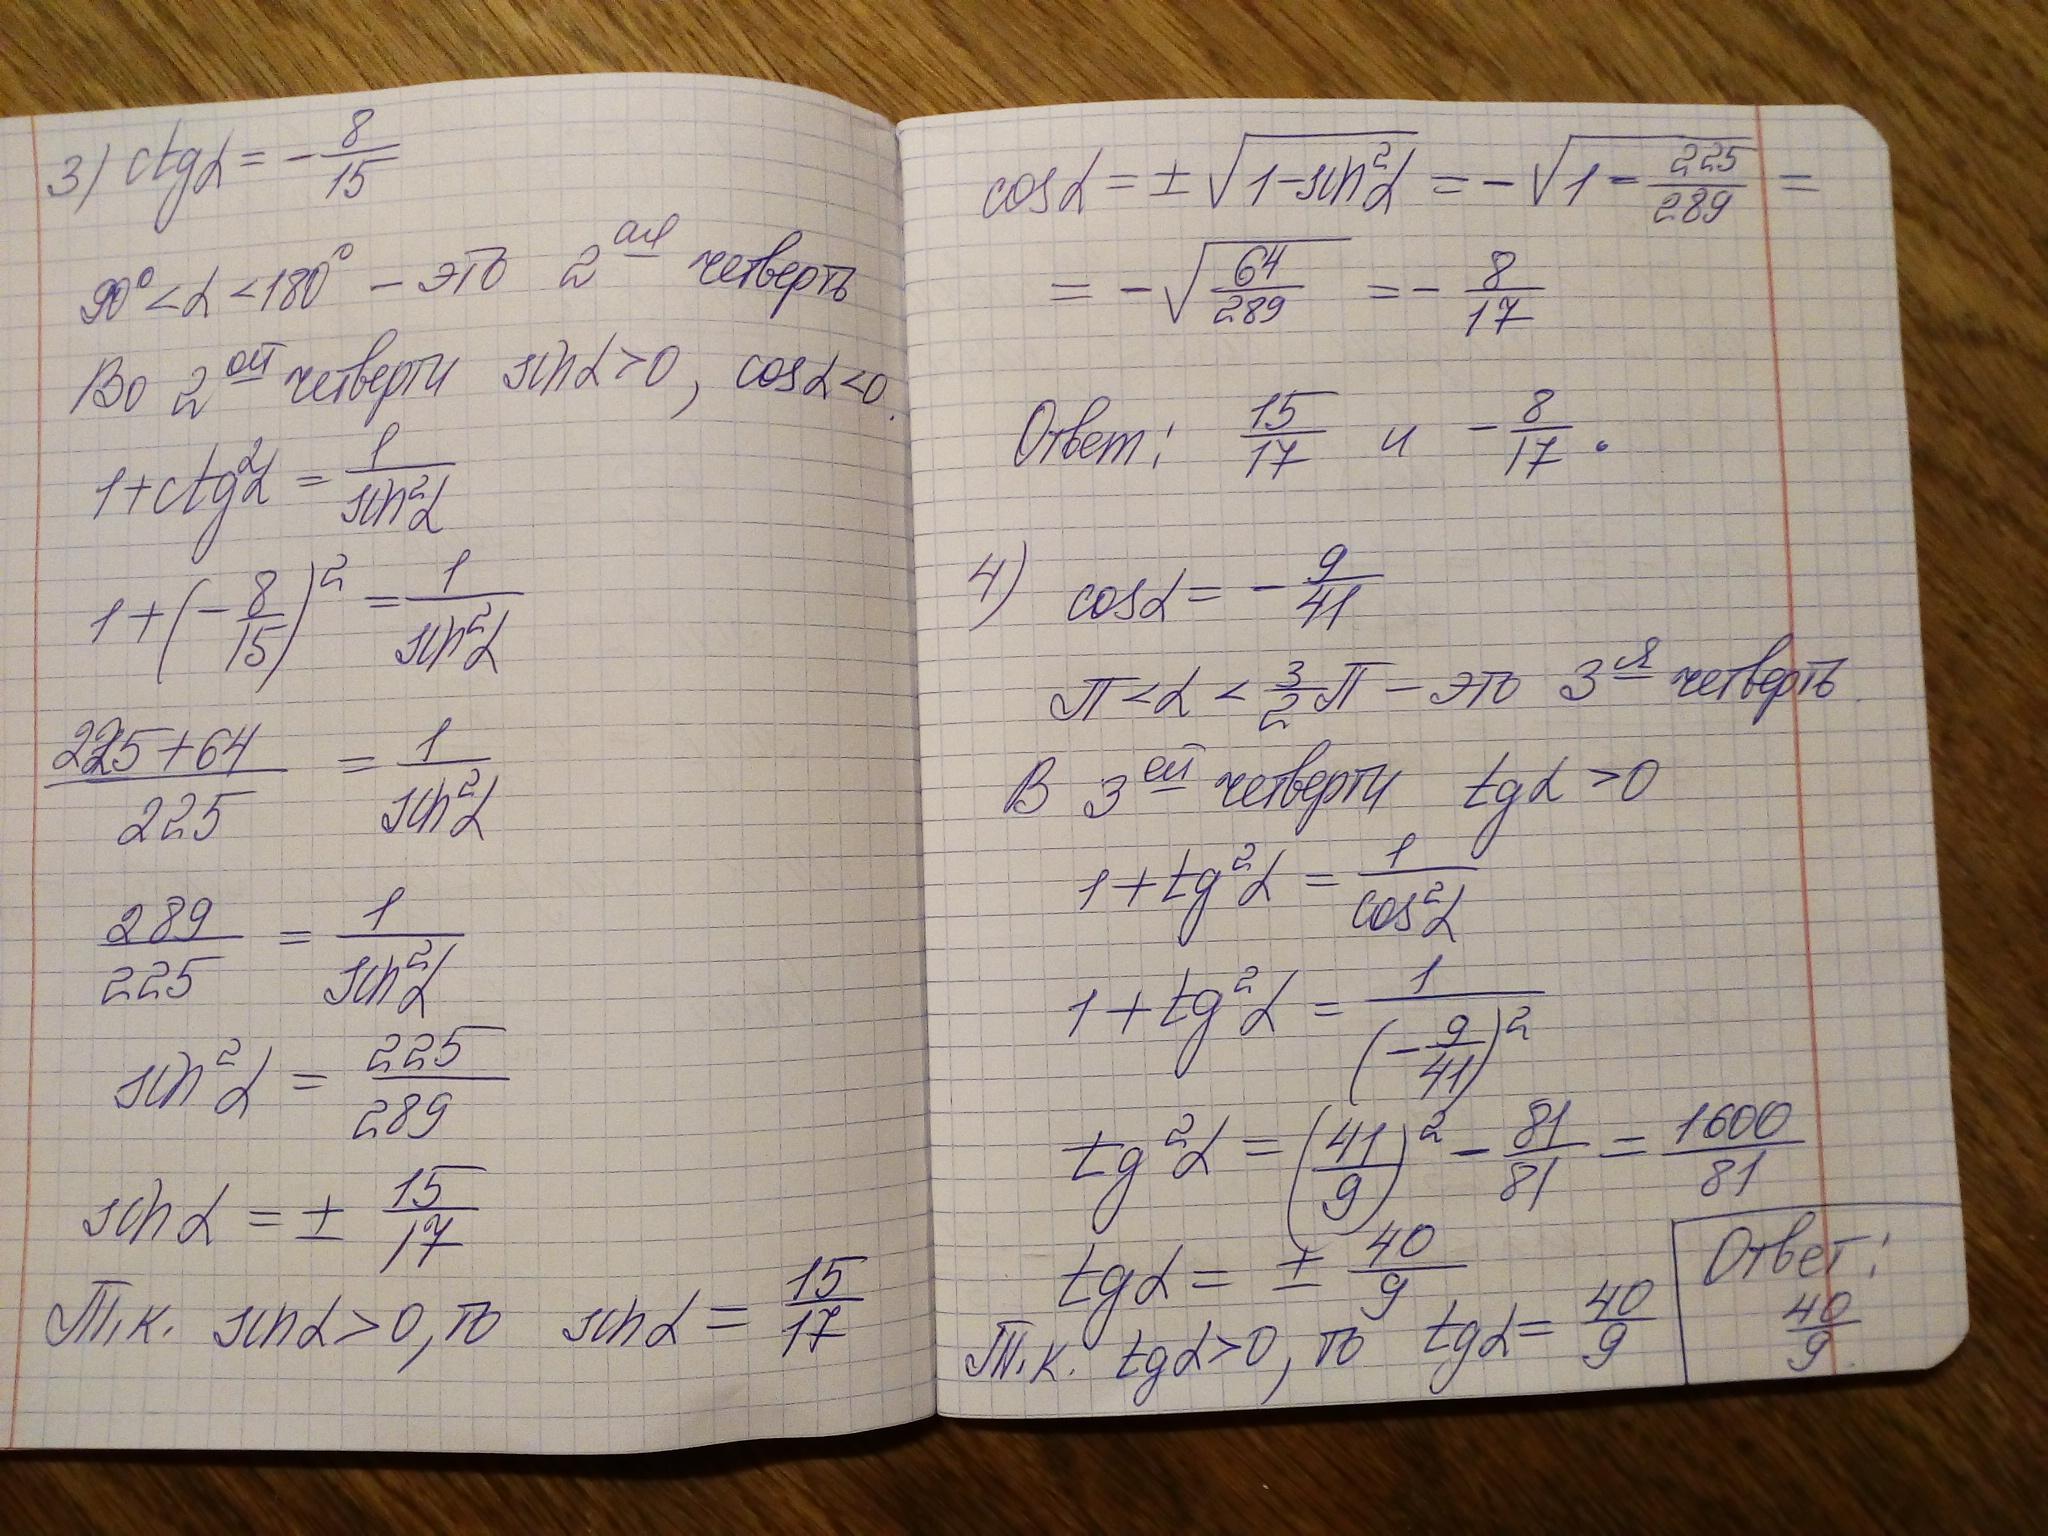 3) ctgα = -8/15
90° < α < 180° - это 2ая четверть
Во 2ой четверти sinα > 0, cosα < 0.
1 + ctg²α = 1/sin²α
1 + (-8/15)² = 1/sin²α
(225 + 64)/225 = 1/sin²α
289/225 = 1/sin²α
sin²α = 225/289
sinα = ± 15/17
Т.к. sinα > 0, то sinα = 15/17
cosα = ± √(1 - sin²α) = - √(1 - 225/289) =
= - √(64/289) = - 8/17
Ответ: 15/17 и - 8/17.
4) cosα = - 9/41
π < α < 3/2 π - это 3я четверть
В 3ей четверти tgα > 0
1 + tg²α = 1/cos²α
1 + tg²α = 1/(-9/41)²
tg²α = (41/9)² - 81/81 = 1600/81
tgα = ± 40/9
Т.к. tgα > 0, то tgα = 40/9
Ответ:
40/9.